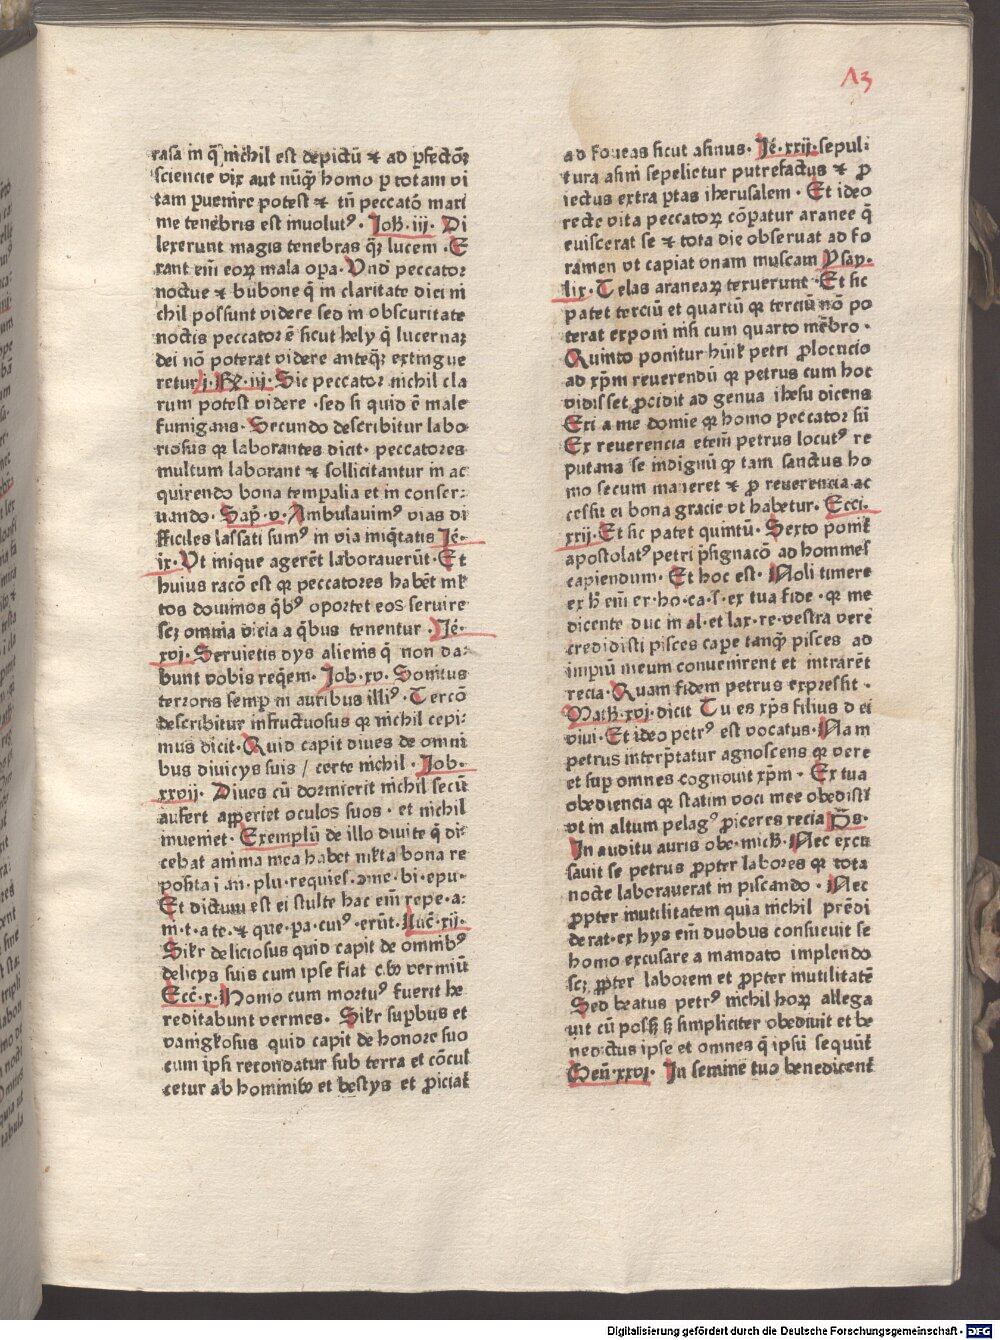 13
rasa in q̄ nichil est depictū ⁊ ad ꝑfectōꝫ
sciencie vix aut nūqꝫ homo ꝑ totam vi
tam puenire potest ⁊ tn̄ peccatō maxi
me tenebris est inuolutꝰ · Joh̄ · iij · Di
lexerunt magis tenebras qꝫ lucem · E
rant eni̅ eoꝝ mala oꝑa · Vnd̄ peccatoꝛ
noctue ⁊ bubone q̄ in claritate diei ni
chil possunt videre sed in obscuritate
noctis peccatoꝛ ē sicut hely q̄ lucernaꝫ
dei nō poterat videre anteqꝫ extingue
retur i · Rꝫ · iij · Sic peccatoꝛ nichil cla
rum potest videre · sed si quid ē male
fumigans · Secundo describitur labo
riosus qꝛ laborantes dicit · peccatores
multum laborant ⁊ sollicitantur in ac
quirendo bona temꝑalia et in conser⸗
uando · Sap̄ · v · Ambulauimꝰ vias di
fficiles lassati sumꝰ in via iniq̄tatis Jē ·
ix · Vt inique agerēt laborauerūt · Et
huius racō est qꝛ peccatores habēt ml̄
tos dominos q̄bꝰ oportet eos seruire
scꝫ omnia vicia a q̄bus tenentur · Jē ·
xvj · Seruietis dys alienis q̄ non da⸗
bunt vobis req̄em · Job · xv · Sonitus
terroris semꝑ in auribus illiꝰ · Tercō
describitur infructuosus qꝛ nichil cepi⸗
mus dicit · Quid capit diues de omni
bus diuicys suis / certe nichil · Job ·
xxvij · Diues cū dormierit nichil secū
aufert apperiet oculos suos · et nichil
inueniet · Exemplū de illo diuite q̄ di⸗
cebat anima mea habet ml̄ta bona re
posita i · an · plu · requies · ꝯme · bi · epu⸗
Et dictum est ei stulte hac eni̅ repe · a⸗
ni · t · a te · ⁊ que · pa · cuiꝰ · erūt · Luc̄ · xij ·
Silr̄ deliciosus quid capit de omnibꝰ
delicys suis cum ipse fiat cibꝰ vermiū
Ecc̄ · x · Homo cum mortuꝰ fuerit he
reditabunt vermes · Silr̄ suꝑbus et
vanigl̄osus quid capit de honore suo
cum ipsi recondatur sub terra et cōcul
cetur ab hominibꝰ et bestys et ꝓiciat᷑
ad foueas sicut asinus · Jē · xxij · sepul⸗
tura asini sepelietur putrefactus ⁊ ꝓ
iectus extra ꝑtas iherusalem · Et ideo
recte vita peccatoꝝ cōꝑatur aranee q̄
euiscerat se ⁊ tota die obseruat ad fo
ramen vt capiat vnam muscam Ysay ·
lix · Telas araneaꝝ texuerunt · Et sic
patet terciū et quartū qꝛ terciū nō po
terat exponi nisi cum quarto mēbro ·
Quinto ponitur hūil̄ petri ꝓlocucio
ad xp̄m reuerendū qꝛ petrus cum hoc
vidisset ꝓcidit ad genua ihesu dicens
Exi a me domine qꝛ homo peccator sū
Ex reuerencia eteni̅ petrus locutꝰ re
putans se indignū ꝙ tam sanctus ho
mo secum maneret ⁊ ꝓ reuerencia ac
cessit ei bona gracie vt habetur · Ecci ·
xxij · Et sic patet quintū · Sexto ponit᷑
apostolatꝰ petri p̄signacō ad homines
capiendum · Et hoc est · Noli timere
ex h̄ eni̅ er · ho · ca · s · ex tua fide · qꝛ me
dicente duc in al · et lax · re · vestra vere
credidisti pisces cape tanqꝫ pisces ad
impiū meum conuenirent et intrarēt
recia · Quam fidem petrus expressit ·
Math̄ · xvj · dicit Tu es xp̄s filius dei
viui · Et ideo petrꝰ est vocatus · Nam
petrus interp̄tatur agnoscens qꝛ vere
et suꝑ omnes cognouit xp̄m · Ex tua
obediencia qꝛ statim voci mee obedisti
vt in altum pelagꝰ ꝓiceres recia p̄s ·
In auditu auris obe · mich̄ · Nec excu
sauit se petrus ꝓpter labores qꝛ tota
nocte laborauerat in piscando · Nec
ꝓpter inutilitatem quia nichil prēdi
derat · ex hys eni̅ duobus consueuit se
homo excusare a mandato implendo
scꝫ ꝓpter laborem et ꝓpter inutilitatē
Sed beatus petrꝰ nichil hoꝝ allega
uit cū possꝫ sꝫ simpliciter obediuit et be
nedictus ipse et omnes q̄ ipsū sequūt᷑
Gen̄ · xxvj · In semine tuo benedicent᷑
Digitalisierung gefördert durch die Deutsche Forschungsgemeinschaft · DFG